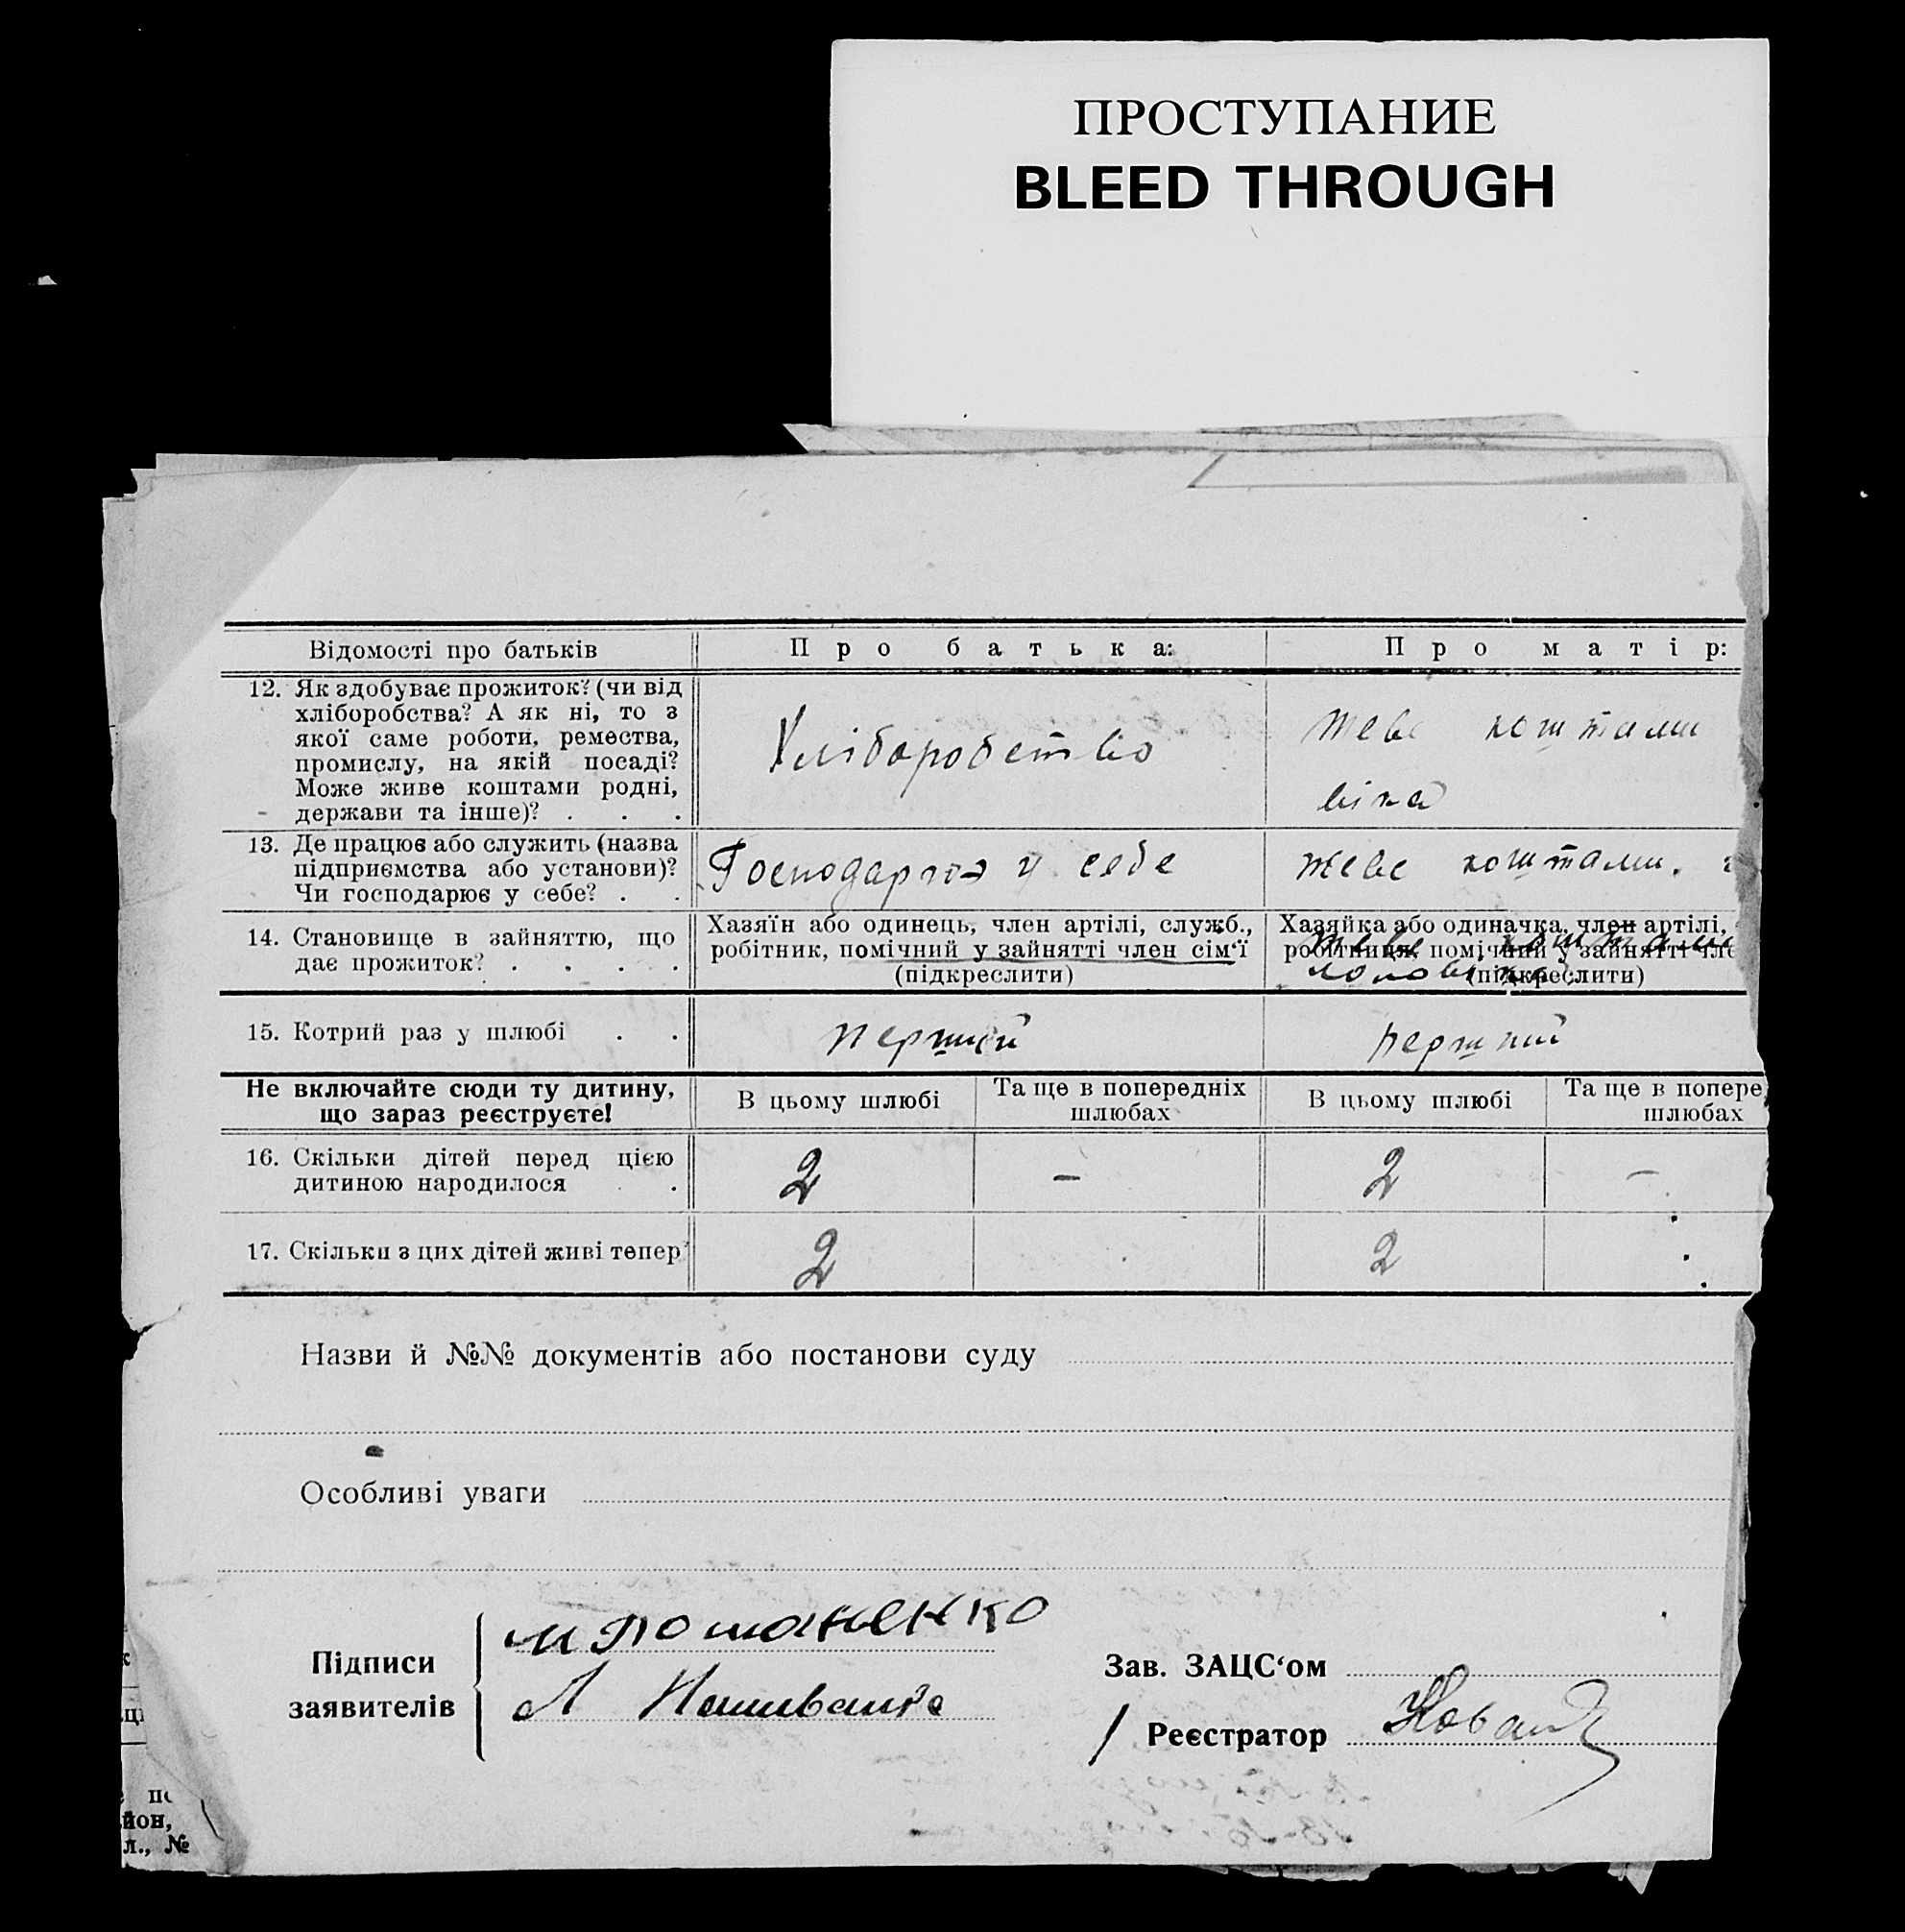 ПРОСТУПАНИЕ
BLEED THROUGH
Відомості про батьків
Про батька:
Про матір:
12. Як здобуває прожиток? (чи від
хліборобства? А як ні, то з
якої саме роботи, ремества,
промислу, на якій посаді?
Може живе коштами родні,
держави та інше)? . . .
Хліборобство
живе коштами
віка
13. Де працює або служить (назва
підприємства або установи)?
Чи господарює у себе? . .
Господарює у себе
живе коштами.
14. Становище в зайняттю, що
дає прожиток? . . . .
Хазяїн або одинець, член артілі, служб.,
робітник, помічний у зайнятті член сім‘ї
(підкреслити)
Хазяйка або одиначка, член артілі,
робітниця, помічний у зайнятті чле
(підкреслити)
живе коштами
чоловіка
15. Котрий раз у шлюбі . .
перший
перший
Не включайте сюди ту дитину,
що зараз реєструєте!
В цьому шлюбі
Та ще в попередніх
шлюбах
В цьому шлюбі
Та ще в попере
шлюбах
16. Скільки дітей перед цією
дитиною народилося .
2
-
2
-
17. Скільки з цих дітей живі тепер
2
2
Назви й №№ документів або постанови суду
Особливі уваги
Підписи
заявителів
Зав. ЗАЦС‘ом
/ Реєстратор
йон,
л., №